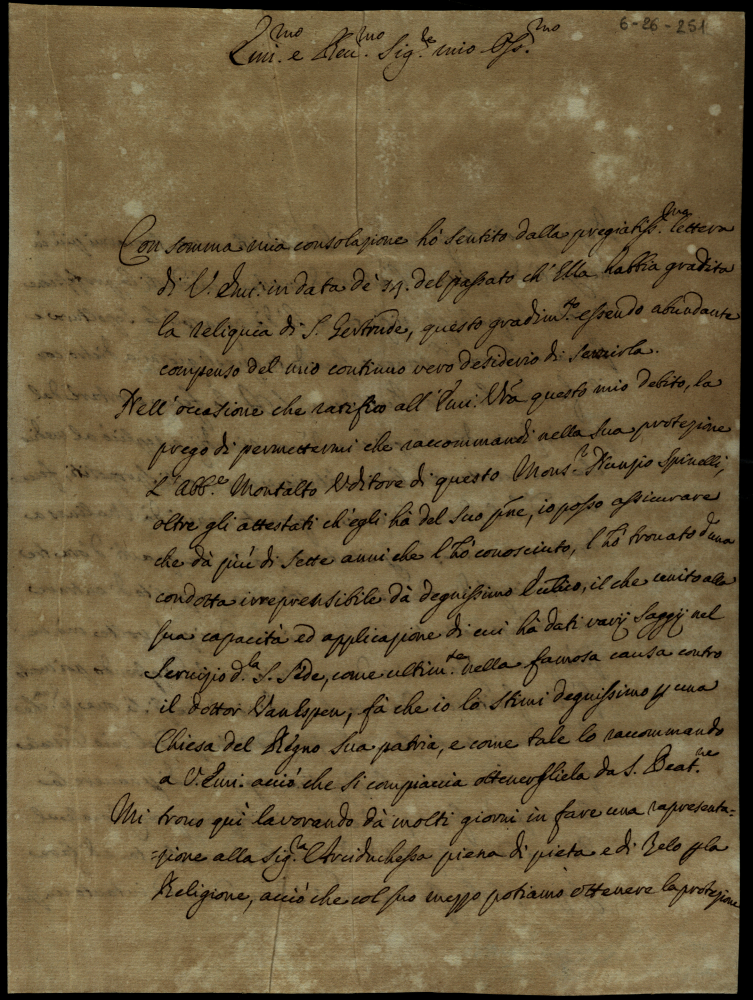 6-26-251
Emi.mo e Reu.mo Sig.re mio Oss.mo
Con somma mia consolazione hò sentito dalla pregiatiss.ma lettera
di V. Em: in data de' 24. del passato ch' Ella habbia gradita
la reliquia di S. Gertrude, questo gradim.to essendo abundante
compenso del mio continuo vero desiderio di servirla.
Nell' occasione che ratifico all' Em: Vra questo mio debito, la
prego di permettermi che raccommandi nella sua protezione
L' Abb.e Montalto Uditore di questo Mons.r Nunzio Spinelli,
oltre gli attestati ch' egli hà del suo pñe, io posso assicurare
che dà più di sette anni che l' hò conosciuto, l' hò trovato d' una
condotta irreprensibile dà degnissimo, il che unito alla
sua capacità ed applicazione di cui hà dati varij saggij nel
servizio d.la S. Sede, come ultim.te nella famosa causa contro
il dottor VanEspen, fà che io lo stimi degnissimo p una
Chiesa del Regno sua patria, e come tale lo raccommando
a V. Emi. acciò che si compiaccia ottenergliela da S. Beat.ne
Mi trovo quì lavorando dà molti giorni in fare una rapresenta=
=zione alla Sig.ra l'Arciduchessa piena di pietà e di Zelo p la
Religione, acciò che col suo mezzo potiamo ottenere la protezione